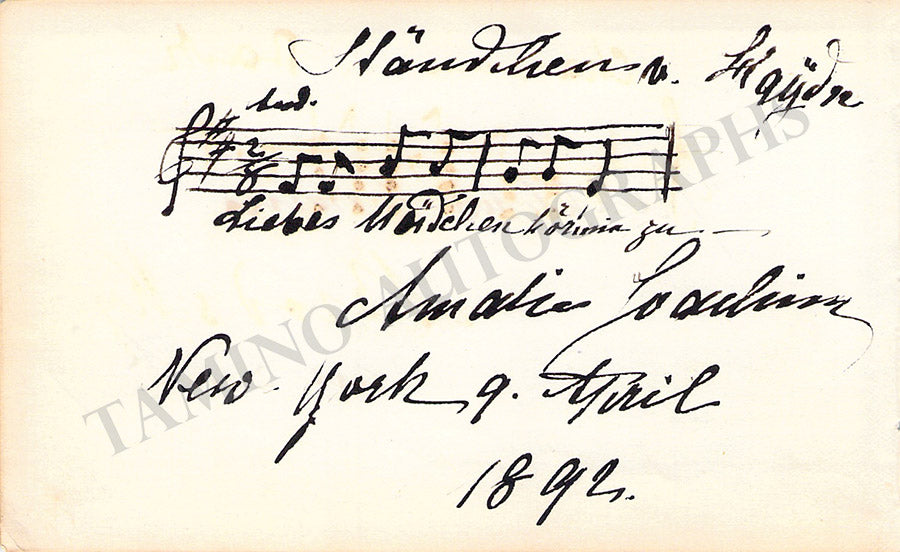 Ständchen v. Haydn
And.
2/8
Liebes Mädchen hör mir zu —
Amalie Joachim
New-York 9. April
1892.
TAMINO AUTOGRAPHS